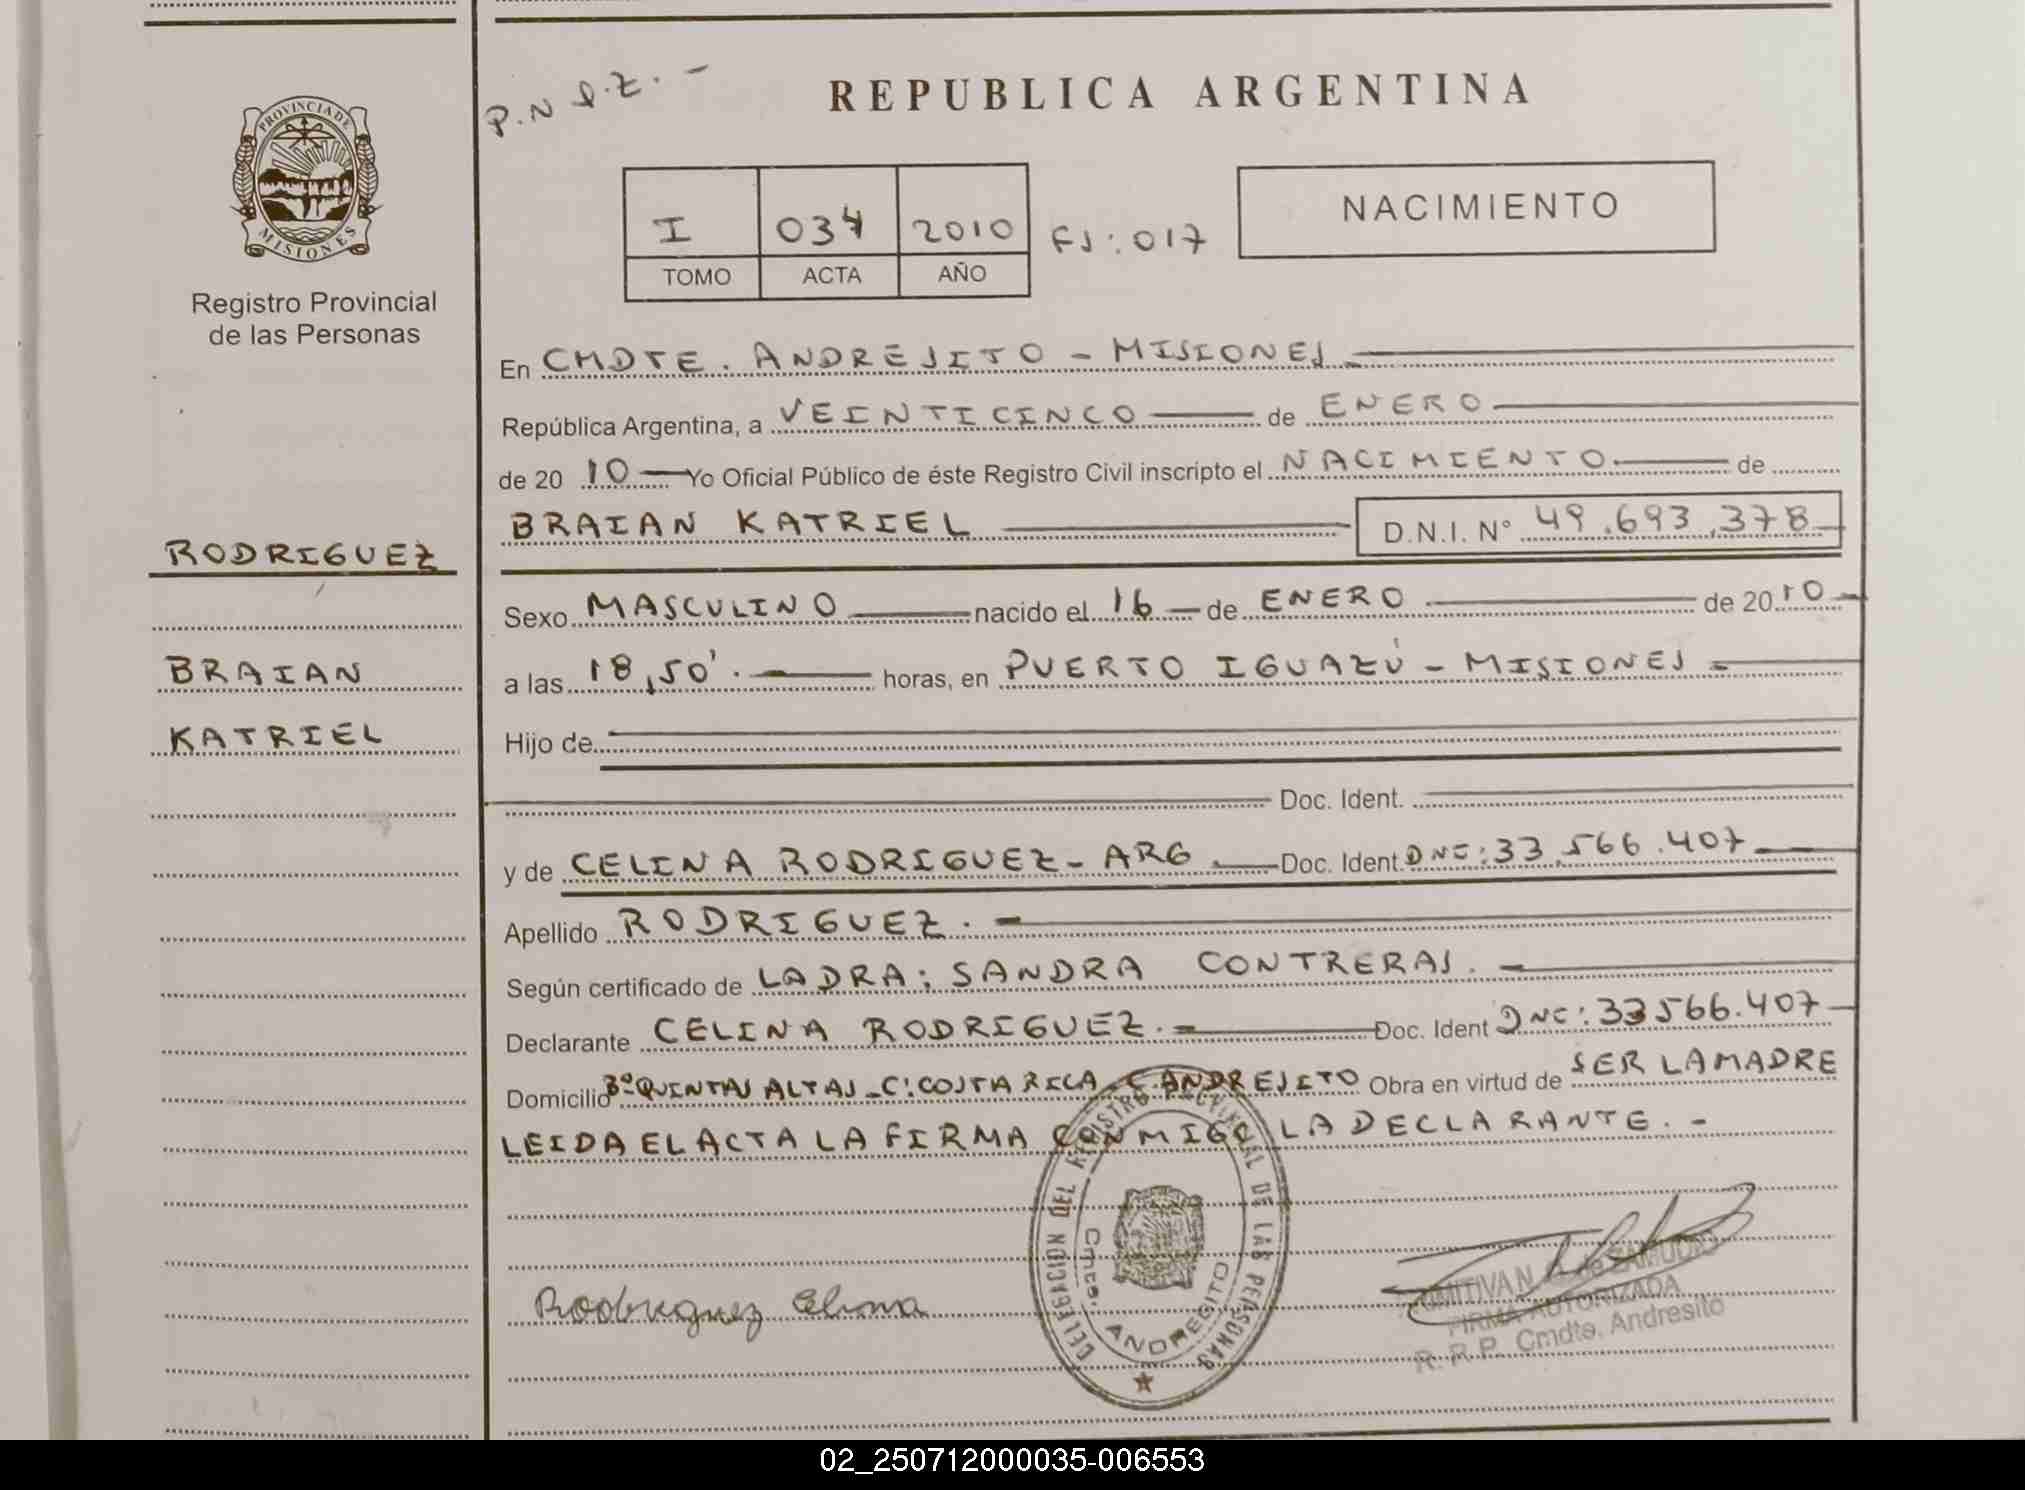 PROVINCIA DE
MISIONES
Registro Provincial
de las Personas
RODRIGUEZ
BRAIAN
KATRIEL
P.N
REPUBLICA ARGENTINA
I 034 2010 FJ: 017
TOMO ACTA AÑO
NACIMIENTO
En CMDTE. ANDRESITO - MISIONES
República Argentina, a VEINTICINCO de ENERO
de 20 10 Yo Oficial Público de éste Registro Civil inscripto el NACIMIENTO de
BRAIAN KATRIEL D.N.I. N° 49.693.378
Sexo MASCULINO nacido el 16 de ENERO de 2010
a las 18,50' horas, en PUERTO IGUAZÚ - MISIONES
Hijo de
Doc. Ident.
y de CELINA RODRIGUEZ - ARG. Doc. Ident. DNI: 33.566.407
Apellido RODRIGUEZ. -
Según certificado de LA DRA: SANDRA CONTRERAS. -
Declarante CELINA RODRIGUEZ. - Doc. Ident DNI: 33566.407
Domicilio B° QUINTAS ALTAS - C: COSTA RICA - C. ANDRESITO Obra en virtud de SER LA MADRE
LEIDA EL ACTA LA FIRMA CONMIGO LA DECLARANTE. -
DELEGACION DEL REGISTRO PROVINCIAL DE LAS PERSONAS
Cmte. ANDRESITO
Rodriguez
ZAMUDIO
FIRMA AUTORIZADA
R. R.P. Cmdte. Andresito
02_250712000035-006553